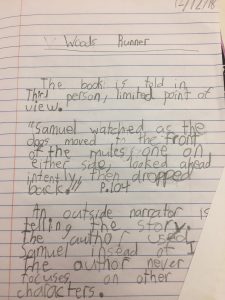 12/12/18
Woods Runner
The book is told in
Third person, limited point of
view.
"Samuel watched as the
dogs moved to the front
of the mules, one on
either side, looked ahead
intently, then dropped
back." p.104
An outside narrator is
telling the story.
The author used
Samuel instead of I
the author never
focuses on other
characters.